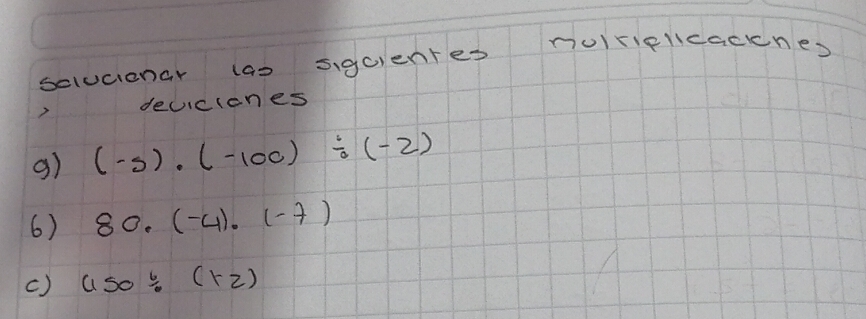 solucionar las sigcientes multiplicaciones
y deviciones
a) (-5). (-100) ÷ (-2)
b) 80. (-4). (-7)
c) 450 ÷ (+2)